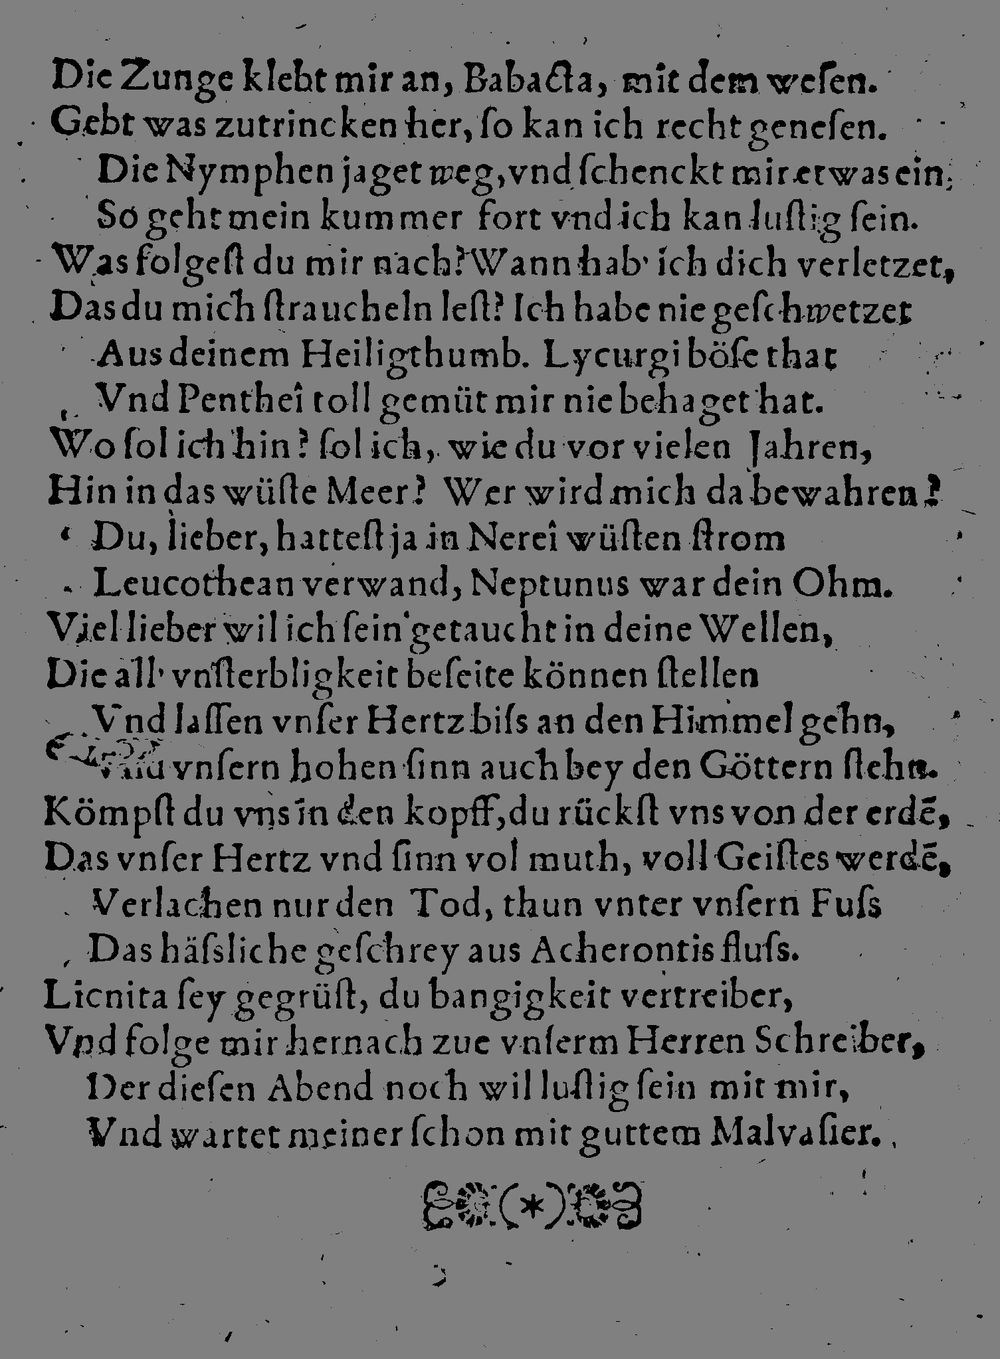 Die Zunge klebt mir an, Babacta, mit dem weſen.
Gebt was zutrincken her, ſo kan ich recht geneſen.
Die Nymphen jaget weg, vnd ſchenckt mir etwas ein;
So geht mein kummer fort vnd ich kan luſtig ſein.
Was folgeſt du mir nach? Wann hab' ich dich verletzet,
Das du mich ſtraucheln leſt? Ich habe nie geſchwetzet
Aus deinem Heiligthumb. Lycurgi böſe that
Vnd Pentheî toll gemüt mir nie behaget hat.
Wo ſol ich hin? ſol ich, wie du vor vielen Jahren,
Hin in das wüſte Meer? Wer wird mich da bewahren?
Du, lieber, hatteſt ja in Nereî wüſten ſtrom
Leucothean verwand, Neptunus war dein Ohm.
Viel lieber wil ich ſein getaucht in deine Wellen,
Die all' vnſterbligkeit beſeite können ſtellen
Vnd laſſen vnſer Hertz biſs an den Himmel gehn,
Vnd vnſern hohen ſinn auch bey den Göttern ſtehn.
Kömpſt du vns in den kopff, du rückſt vns von der erdē,
Das vnſer Hertz vnd ſinn vol muth, voll Geiſtes werdē,
Verlachen nur den Tod, thun vnter vnſern Fuſs
Das häſsliche geſchrey aus Acherontis fluſs.
Licnita ſey gegrüſt, du bangigkeit vertreiber,
Vnd folge mir hernach zue vnſerm Herren Schreiber,
Der dieſen Abend noch wil luſtig ſein mit mir,
Vnd wartet meiner ſchon mit guttem Malvaſier.
(*)